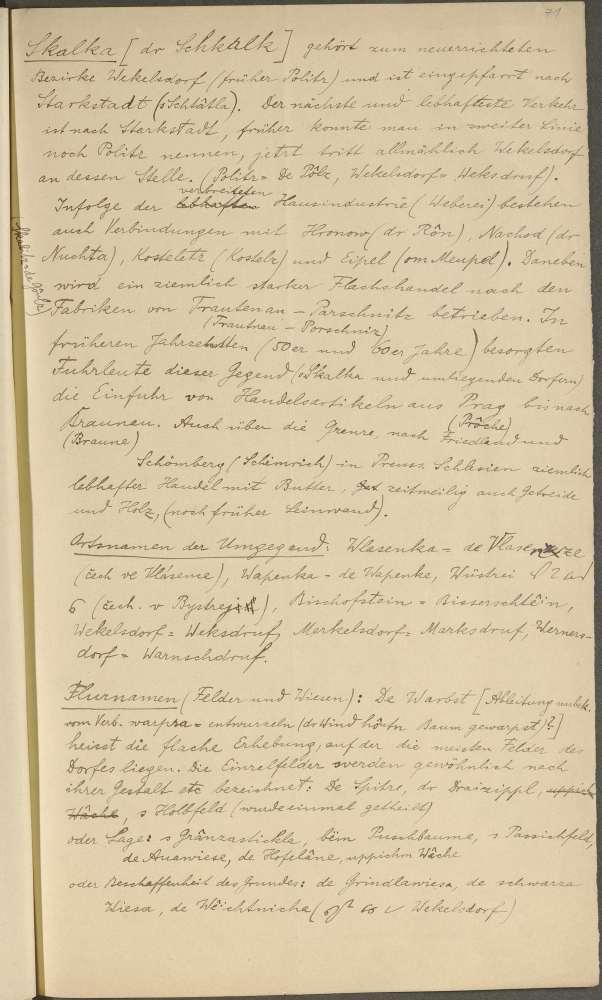 71
Skalka [dr Schkalk] gehört zum neuerrichteten
Bezirke Wekelsdorf (früher Politz) und ist eingepfarrt nach
Starkstadt (s Schtâtla). Der nächste und lebhafteste Verkehr
ist nach Starkstadt, früher konnte man in zweiter Linie
noch Politz nennen, jetzt tritt allmählich Wekelsdorf
an dessen Stelle. (Politz = De Pôlz, Wekelsdorf = Weksdruf).
verbreiteten
Infolge der lebhaften Hausindustrie (Weberei) bestehen
auch Verbindungen mit Hronow (dr Rôn), Nachod (dr
Nuchta), Kosteletz (Kostelz) und Eipel (om Meupel). Daneben
wird ein ziemlich starker Flachshandel nach den
Fabriken von Trautenau – Parschnitz betrieben. In
(Trautnau – Porschniz)
früheren Jahrzehnten (50er und 60er Jahre) besorgten
Fuhrleute dieser Gegend (Skalka und umliegenden Dörfern)
die Einfuhr von Handelsartikeln aus Prag bis nach
Braunau. Auch über die Grenze, nach Friedland und
(Braune)
Schömberg (Schimrich) in Preuss. Schlesien ziemlich
lebhafter Handel mit Butter, zeitweilig auch Getreide
und Holz, (noch früher Leinwand).
Ortsnamen der Umgegend: Wlasenka = de
(čech ve Vlásence), Wapenka = de Wapenke, Wüstrei
(čech. v), Bischofstein = Bisserschtêin,
Wekelsdorf = Weksdruf, Merkelsdorf = Marksdruf, Werners-
dorf = Warnschdruf.
Flurnamen (Felder und Wiesen): De Warbst [Ableitung unbek.
vom Verb. warpsa = entwurzeln (dr Wind hôstn Baum gewarpst)?]
heisst die flache Erhebung, auf der die meisten Felder des
Dorfes liegen. Die Einzelfelder werden gewöhnlich nach
ihrer Gestalt etc bezeichnet: De Spitze, dr Draizippl,
Wâche, s Holbfeld (wurde einmal getheilt)
oder Lage: s Gränzastickla, bêin Puschbaume, s Passichfeld,
de Auawiese, de Hofelâne, uppichm Wâche
oder Beschaffenheit des Grundes: de Grindlawiesa, de schwarza
Wiesa, de Wêichtnicha ( Wekelsdorf)